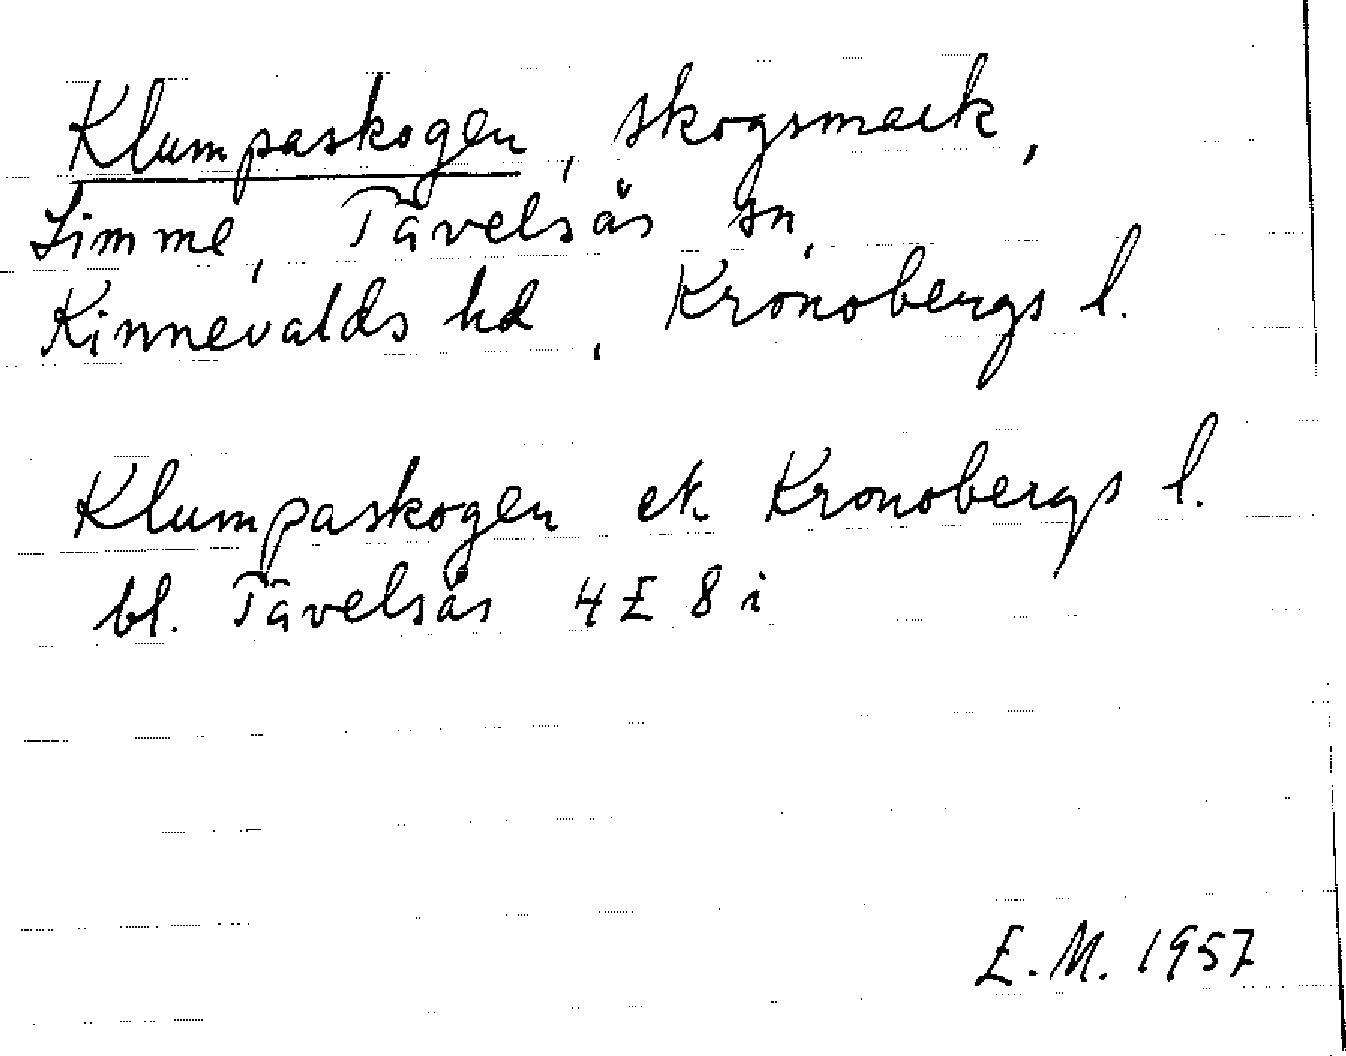 Klumpaskogen, skogsmark,
Simme, Tävelsås sn,
Kinnevalds hd, Kronobergs l.
Klumpaskogen ek. Kronobergs l.
bl. Tävelsås 4E 8i
E.M. 1957